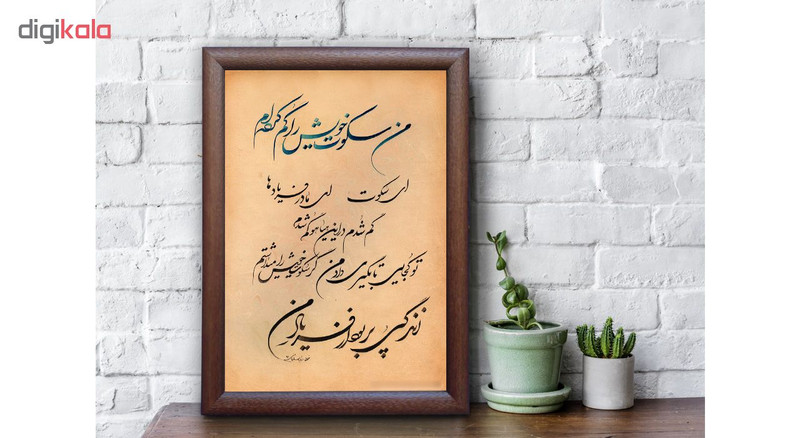 digikala
من سکوت خویش را گم کرده‌ام
ای سکوت ای مادر فریادها
گم شدم در این هیاهو گم شدم
تو کجایی تا بگیری داد من
گر سکوت خویش را می‌داشتم
زندگی پر بود از فریاد من